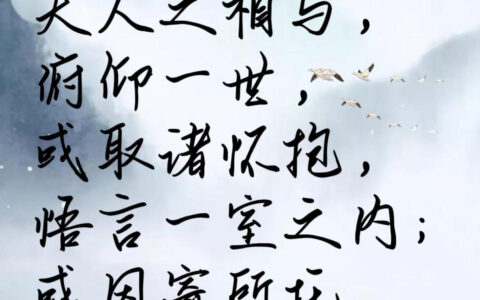 夫人之相与，
俯仰一世，
或取诸怀抱，
悟言一室之内；
或因寄所托